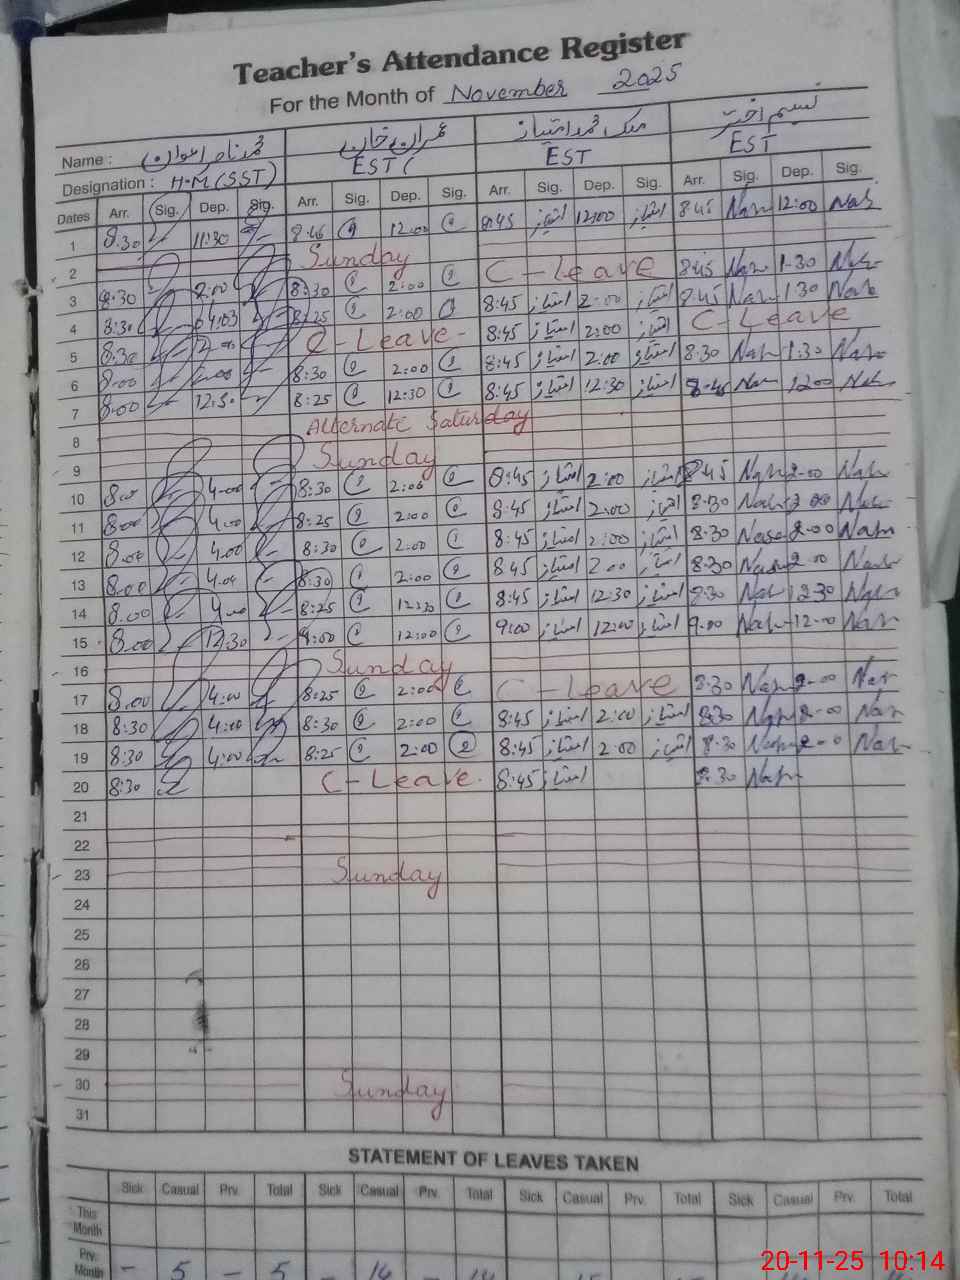 Teacher's Attendance Register
For the Month of November 2025
Name : محمد ناصر اعوان عمران خان ملک محمد امتیاز نسیم اختر
Designation : H.M (SST) EST EST EST
Dates Arr. Sig. Dep. Sig. Arr. Sig. Dep. Sig. Arr. Sig. Dep. Sig. Arr. Sig. Dep. Sig.
1 8.30 11:30 8:45 12:00 8:45 امتیاز 12:00 امتیاز 8:45 Nas 12:00 Nas
2 Sunday
3 8:30 2:00 8:30 2:00 C-Leave 8:45 Nas 1:30 Nas
4 8:30 04:03 8:25 2:00 8:45 امتیاز 2:00 امتیاز 8:45 Nas 1:30 Nas
5 8:30 2:00 C-Leave 8:45 امتیاز 2:00 امتیاز C-Leave
6 8:00 2:00 8:30 2:00 8:45 امتیاز 2:00 امتیاز 8:30 Nas 1:30 Nas
7 8:00 12:30 8:25 12:30 8:45 امتیاز 12:30 امتیاز 8:45 Nas 12:00 Nas
8 Alternate Saturday
9 Sunday
10 8:00 4:00 8:30 2:00 8:45 امتیاز 2:00 امتیاز 8:45 Nas 2:00 Nas
11 8:00 4:00 8:25 2:00 8:45 امتیاز 2:00 امتیاز 8:30 Nas 2:00 Nas
12 8:00 4:00 8:30 2:00 8:45 امتیاز 2:00 امتیاز 8:30 Nas 2:00 Nas
13 8:00 4:00 8:30 2:00 8:45 امتیاز 2:00 امتیاز 8:30 Nas 2:00 Nas
14 8:00 4:00 8:25 12:30 8:45 امتیاز 12:30 امتیاز 8:30 Nas 12:30 Nas
15 8:00 12:30 9:00 12:00 9:00 امتیاز 12:00 امتیاز 9:00 Nas 12:00 Nas
16 Sunday
17 8:00 4:00 8:25 2:00 C-Leave 8:30 Nas 2:00 Nas
18 8:30 4:00 8:30 2:00 8:45 امتیاز 2:00 امتیاز 8:30 Nas 2:00 Nas
19 8:30 4:00 8:25 2:00 8:45 امتیاز 2:00 امتیاز 8:30 Nas 2:00 Nas
20 8:30 C-Leave. 8:45 امتیاز 8:30 Nas
21
22
23 Sunday
24
25
26
27
28
29
30 Sunday
31
STATEMENT OF LEAVES TAKEN
Sick Casual Prv. Total Sick Casual Prv. Total Sick Casual Prv. Total Sick Casual Prv. Total
This Month
Prv. Month - 5 - 5 - 14
20-11-25 10:14